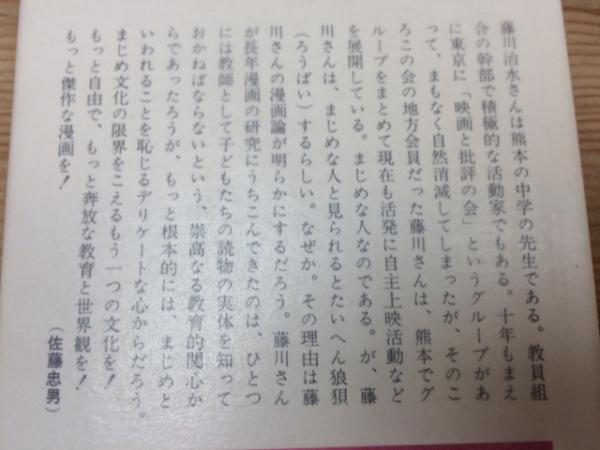 藤川治水さんは熊本の中学の先生である。教員組
合の幹部で積極的な活動家でもある。十年もまえ
に東京に「映画と批評の会」というグループがあ
って、まもなく自然消滅してしまったが、そのこ
ろこの会の地方会員だった藤川さんは、熊本でグ
ループをまとめて現在も活発に自主上映活動など
を展開している。まじめな人なのである。が、藤
川さんは、まじめな人と見られるとたいへん狼狽
（ろうばい）するらしい。なぜか。その理由は藤
川さんの漫画論が明らかにするだろう。藤川さん
が長年漫画の研究にうちこんできたのは、ひとつ
には教師として子どもたちの読物の実体を知って
おかねばならないという、崇高なる教育的関心か
らであったろうが、もっと根本的には、まじめと
いわれることを恥じるデリケートな心からだろう。
まじめ文化の限界をこえるもう一つの文化を！
もっと自由で、もっと奔放な教育と世界観を！
もっと傑作な漫画を！
（佐藤忠男）